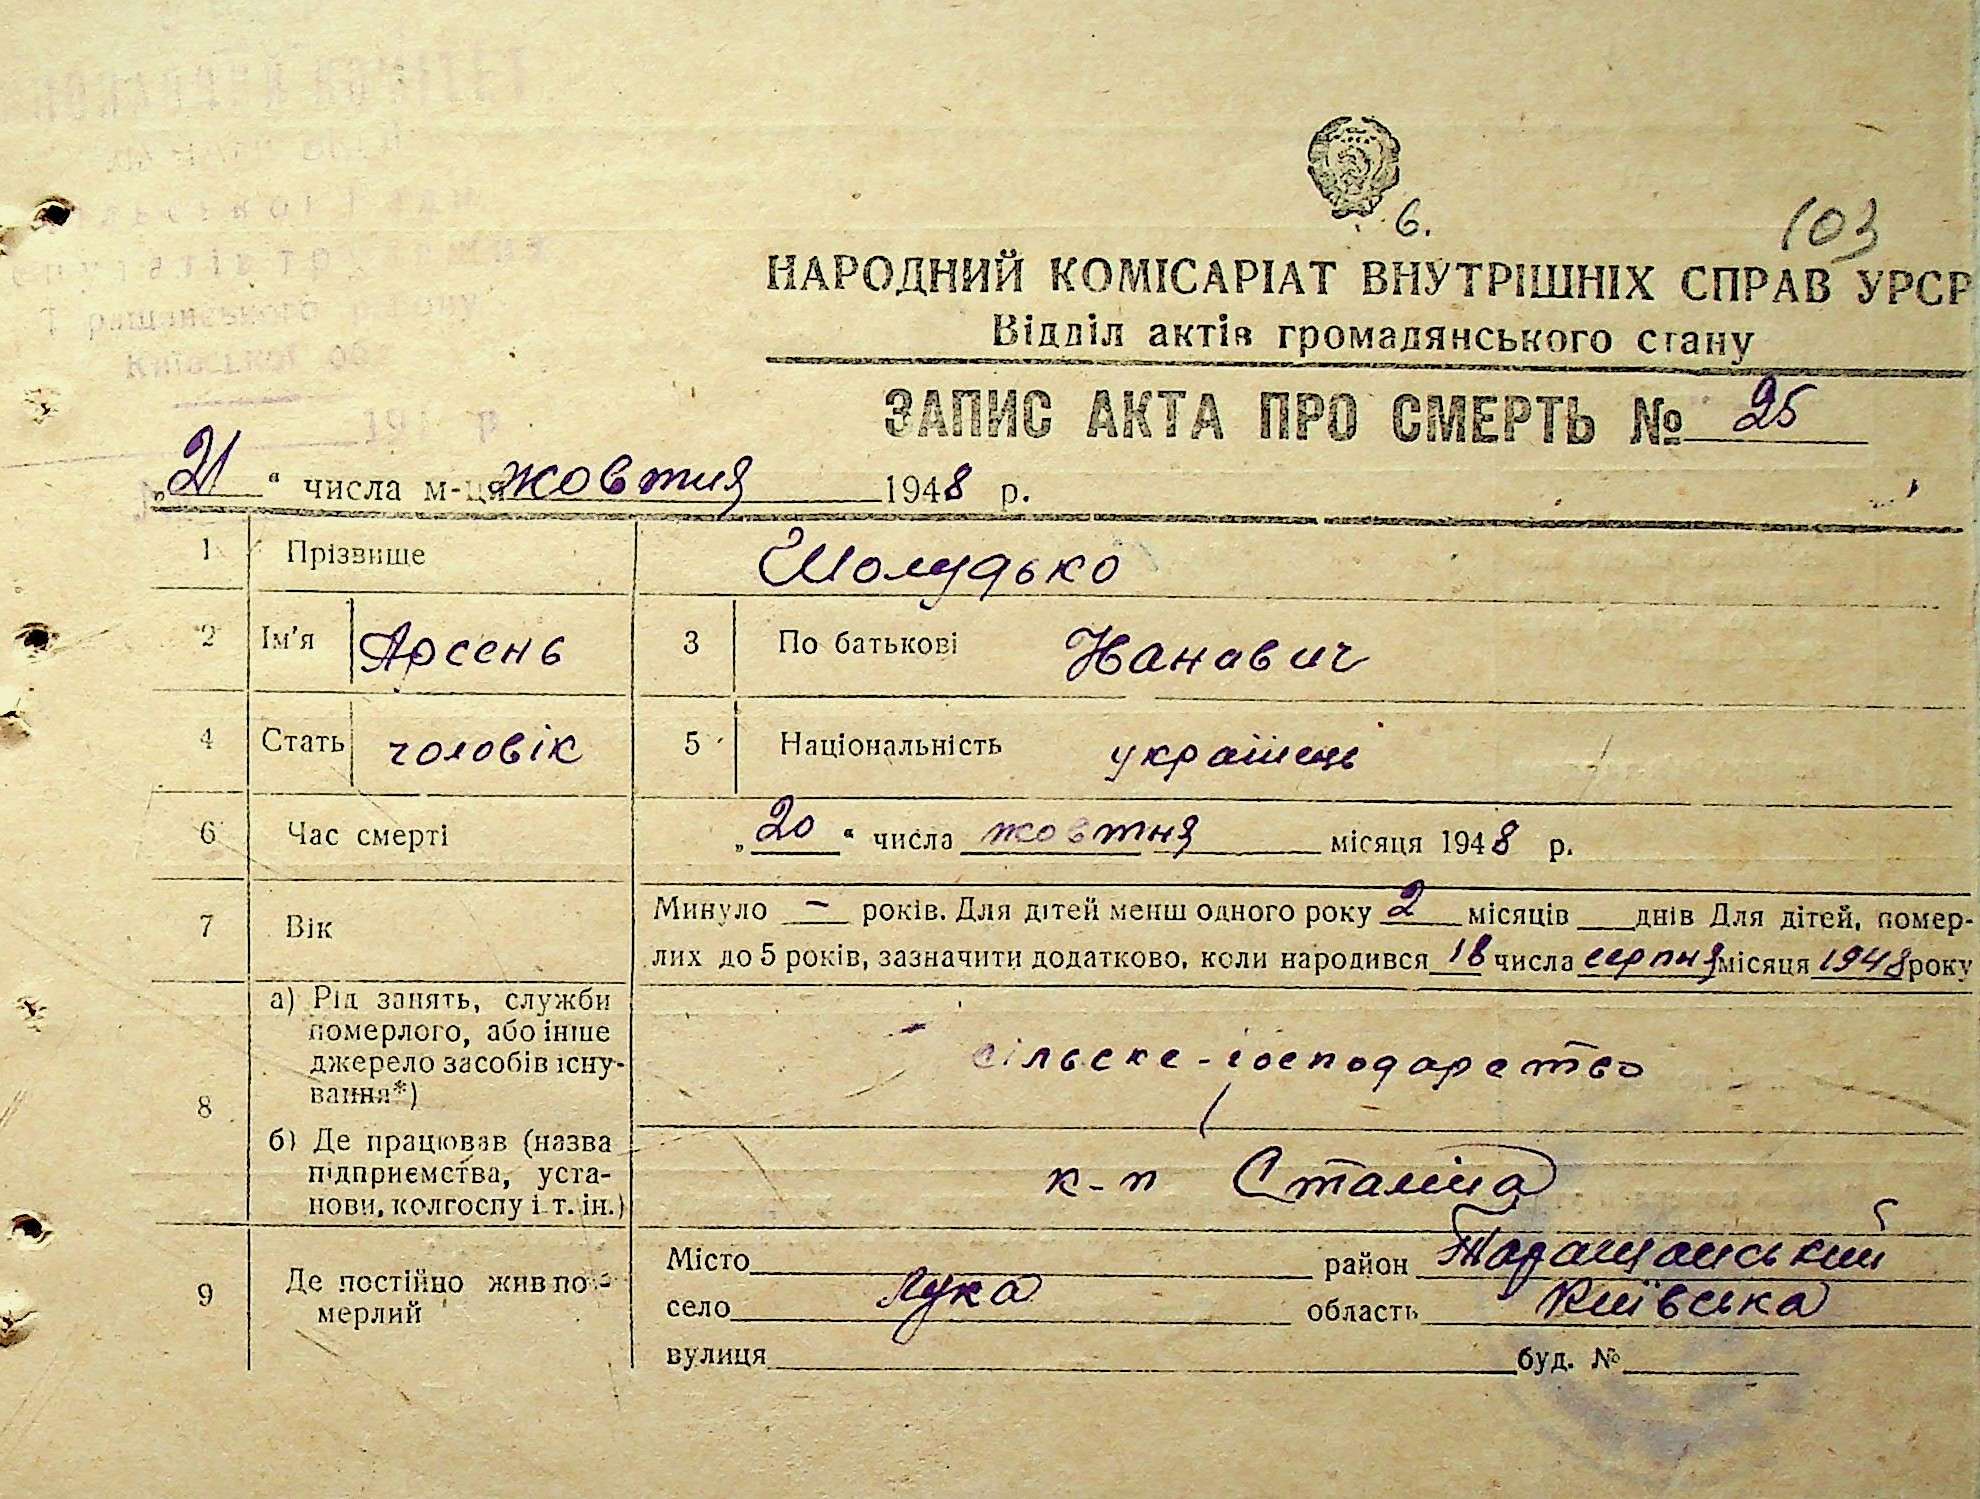 6.
103
НАРОДНИЙ КОМІСАРІАТ ВНУТРІШНІХ СПРАВ УРСР
Відділ актів громадянського стану
ЗАПИС АКТА ПРО СМЕРТЬ № 25
„21“ числа м-ця жовтня 1948 р.
1 Прізвище Шолудько
2 Ім'я Арсень 3 По батькові Іванавич
4 Стать чоловік 5 Національність українець
6 Час смерті „20“ числа жовтня місяця 1948 р.
7 Вік Минуло — років. Для дітей менш одного року 2 місяців ___ днів Для дітей, помер-
лих до 5 років, зазначити додатково, коли народився 18 числа серпня місяця 1948 року
8 а) Рід занять, служби
померлого, або інше
джерело засобів існу-
вання*)
сільске-господарство
б) Де працював (назва
підприємства, уста-
нови, колгоспу і т. ін.)
к-п Сталіна
9 Де постійно жив по-
мерлий
Місто район Таращанський
село Лука область Київська
вулиця буд. №